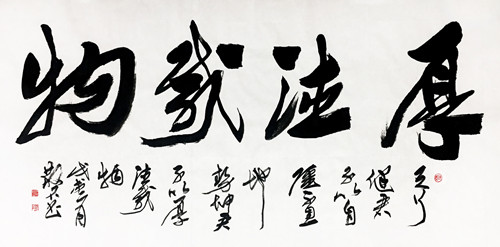 厚德載物
天行
健君
子以自
強不息
地
勢坤君
子以厚
德載
物